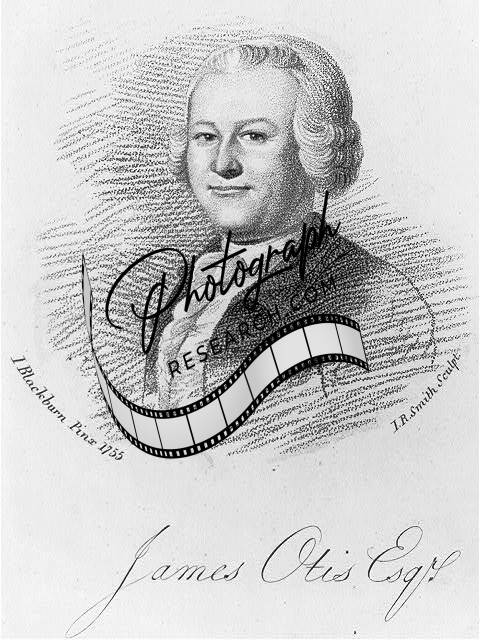 Photograph
RESEARCH.COM
I Blackburn Pinx 1755
I.R. Smith Sculpt.
James Otis Esqr.